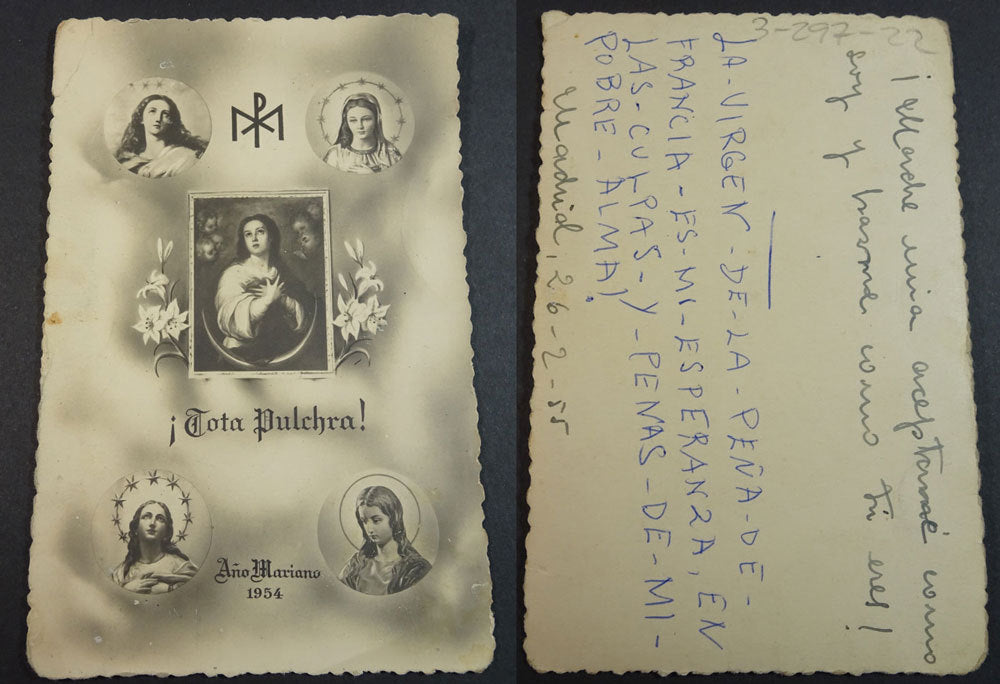 ¡Tota Pulchra!
Año Mariano
1954
3-297-22
¡Madre mia aceptamé como
soy y hasme como tú eres!
LA-VIRGEN-DE-LA-PEÑA-DE-
FRANCIA-ES-MI-ESPERANZA, EN
LAS-CULPAS-Y-PENAS-DE-MI-
POBRE-ALMA!
Madrid, 26-2-55